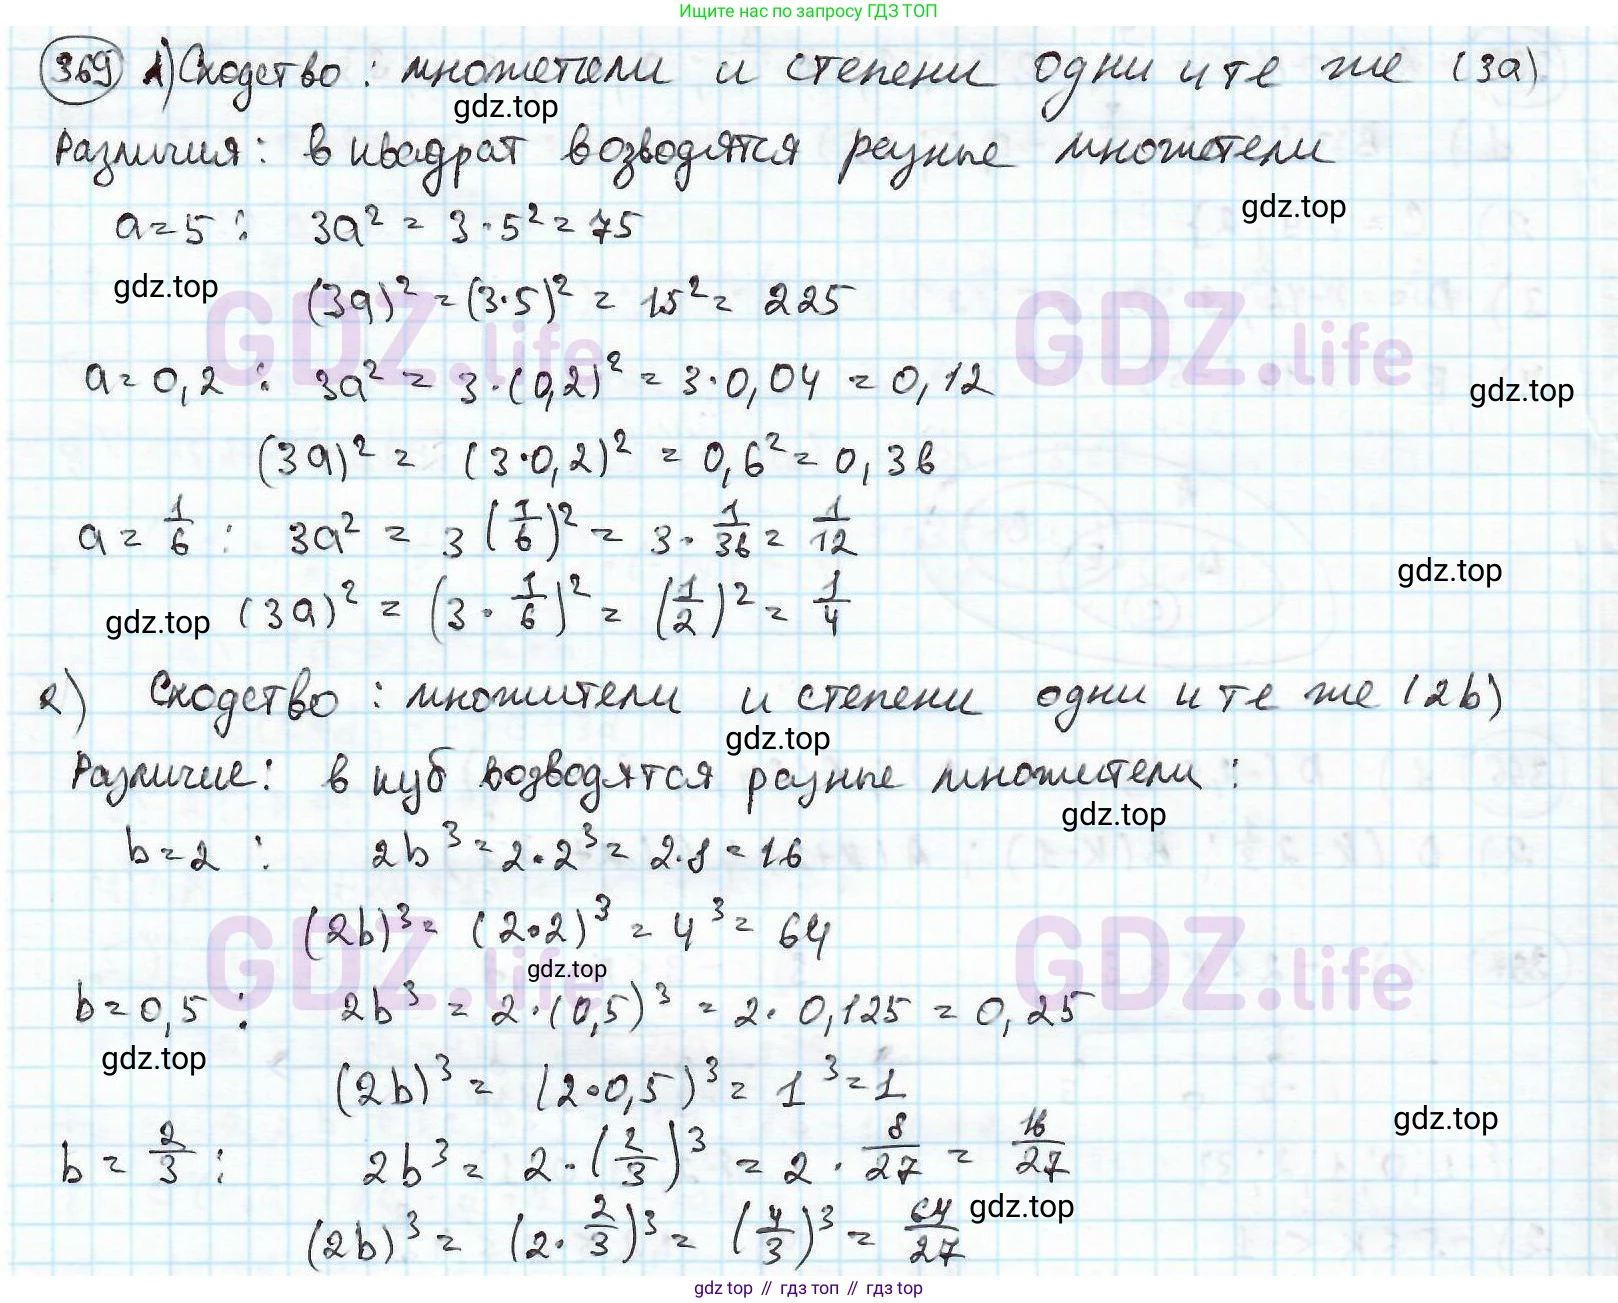 Ищите нас по запросу ГДЗ ТОП
369 1) Сходство: множетели и степени одни и те же (3a)
gdz.top
Различия: в квадрат возводятся разные множетели
gdz.top
a = 5 : 3a² = 3·5² = 75
gdz.top
(3a)² = (3·5)² = 15² = 225
GDZ.life GDZ.life
a = 0,2 : 3a² = 3·(0,2)² = 3·0,04 = 0,12
gdz.top
(3a)² = (3·0,2)² = 0,6² = 0,36
a = 1/6 : 3a² = 3(1/6)² = 3·1/36 = 1/12
gdz.top
gdz.top (3a)² = (3·1/6)² = (1/2)² = 1/4
2) Сходство: множители и степени одни и те же (2b)
gdz.top
Различие: в куб возводятся разные множители:
gdz.top
b = 2 : 2b³ = 2·2³ = 2·8 = 16
(2b)³ = (2·2)³ = 4³ = 64
GDZ.life GDZ.life
gdz.top
b = 0,5 : 2b³ = 2·(0,5)³ = 2·0,125 = 0,25
gdz.top
(2b)³ = (2·0,5)³ = 1³ = 1
gdz.top
b = 2/3 : 2b³ = 2·(2/3)³ = 2·8/27 = 16/27
gdz.top
(2b)³ = (2·2/3)³ = (4/3)³ = 64/27
gdz top // гдз топ // гдз top